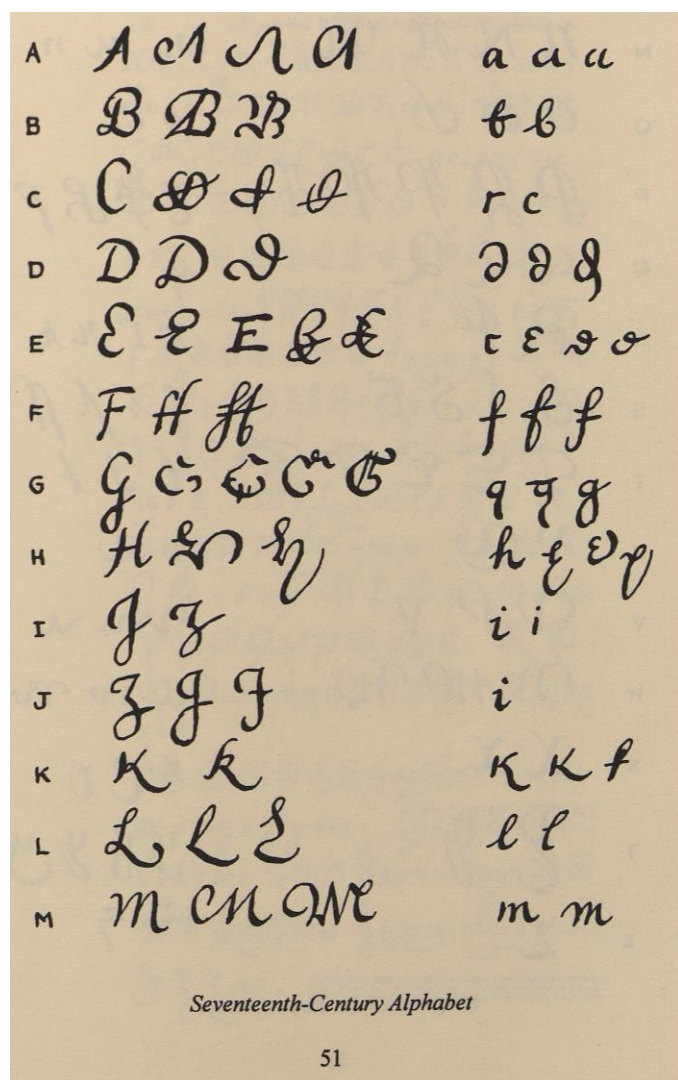 A A A A A a a a
B B B B b b
C C C C C r c
D D D D d d d
E E E E E E e e e e
F F F F f f f
G G G G G G g g g
H H H H h h h h
I I I i i
J J J J i
K K K K K f
L L L L l l
M M M M m m
Seventeenth-Century Alphabet
51